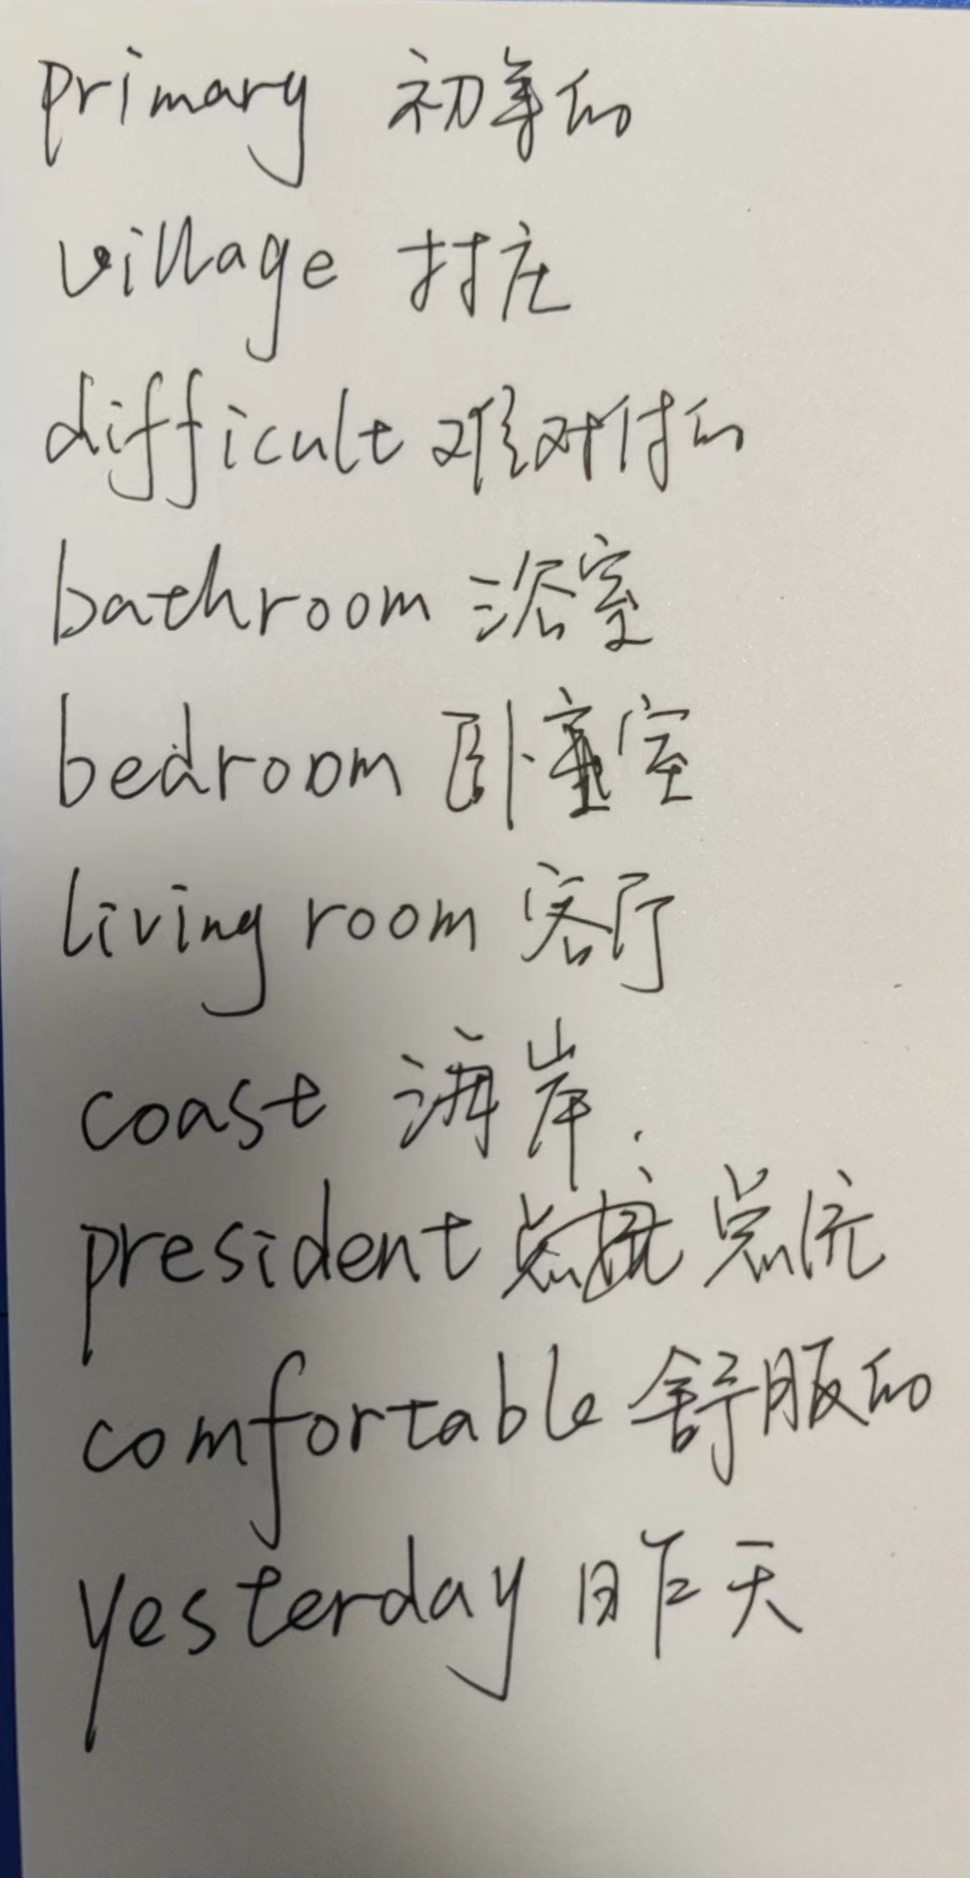 primary 初等的
village 村庄
difficult 难对付的
bathroom 浴室
bedroom 卧室
living room 客厅
coast 海岸.
president 总统
comfortable 舒服的
yesterday 昨天